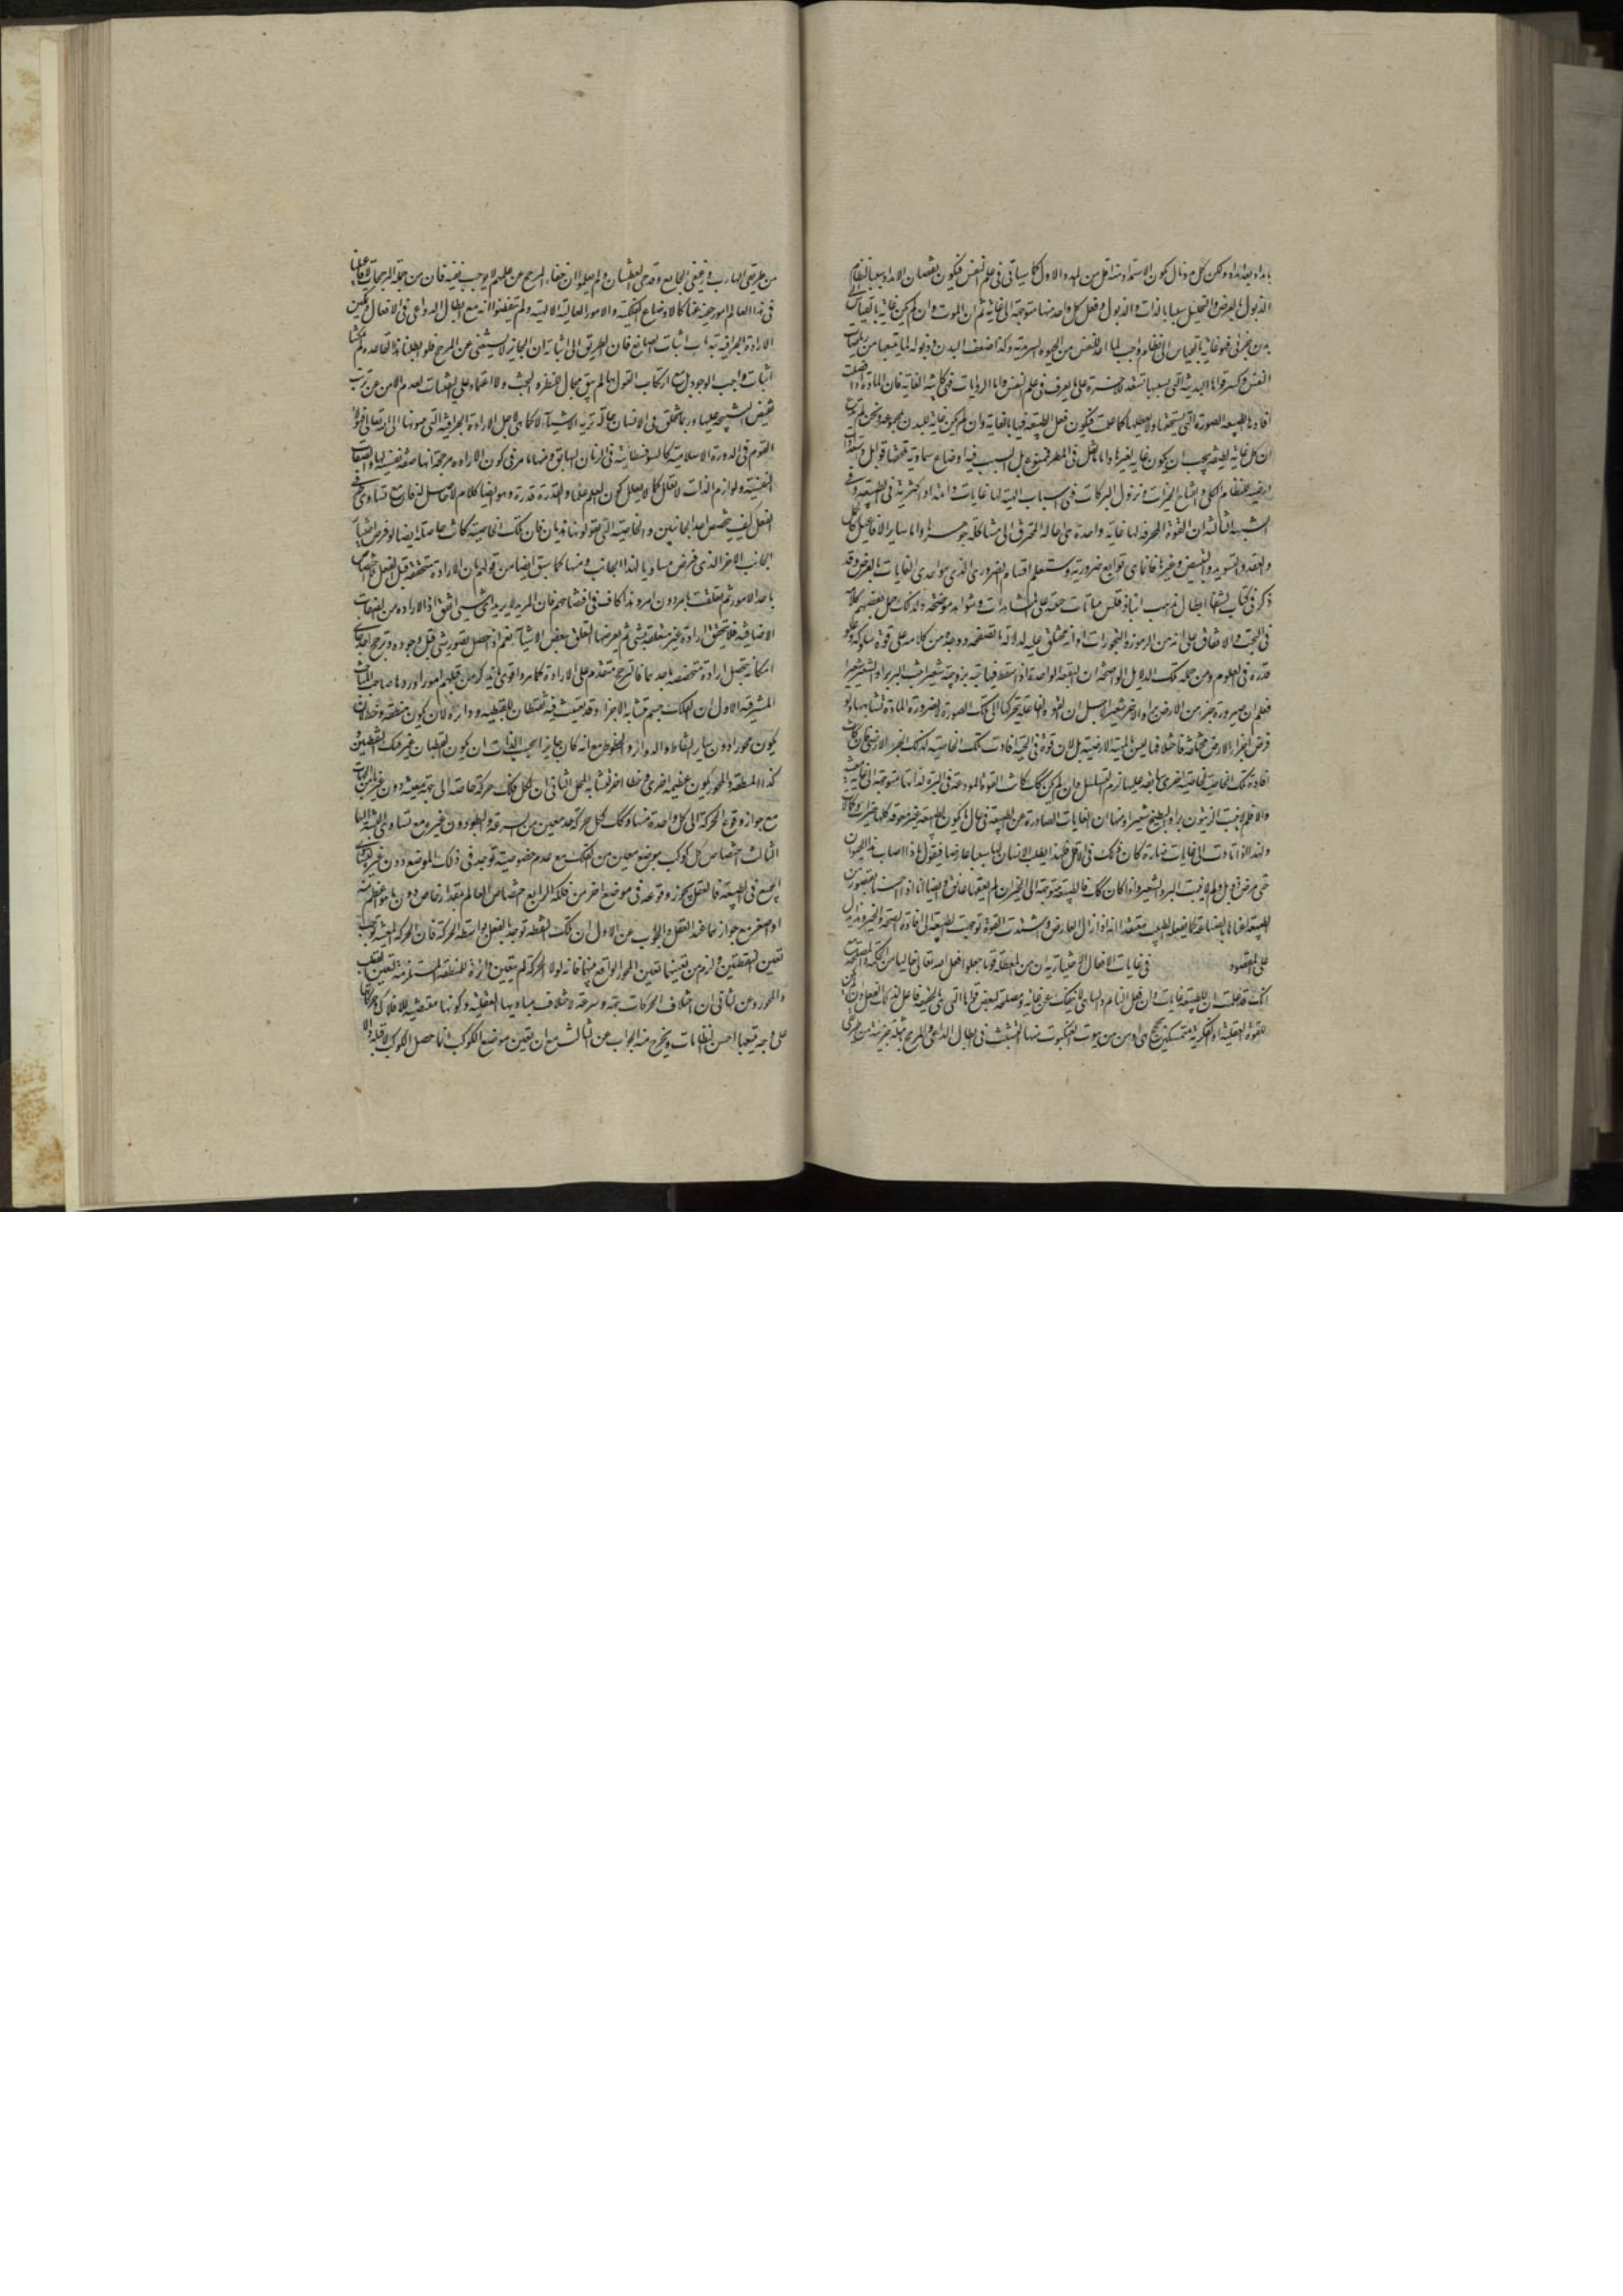 بامداد بعد امداد ولكن كل مرة نال يكون الاستمداد منه اقل من المدد الاول كما سيأتى فى علم النفس فيكون نقصان الامداد سببا لنظام
الذبول بالعرض والتحليل سببا بالذات والذبول وفعل كل واحد منها متوجه الى غاية ثم ان الموت وان لم يكن غاية بالقياس الى
بدن جزئى فهو غاية بالقياس الى نظام واجب لما اعد للنفس من الحيوة السرمدية وكذا ضعف البدن وذبوله لما يتبعها من رياضات
النفس وكسر قواها البدنية التى بسببها تستعد للاخرة على ما يعرف فى علم النفس واما الزيادات فهى كائنة لغاية فان المادة اذا فضلت
افادها الطبيعة الصورة التى تستحقها ولا يعطلها كما علمت فيكون فعل الطبيعة فيها بالغاية وان لم يكن غاية للبدن بمجموعه ونحن لم ندع
ان كل غاية لطبيعة يجب ان يكون غاية لغيرها واما ما نقل فى المطر فممنوع بل السبب فيه اوضاع سماوية تلحقها قوابل واستعدادات
ارضية للنظام الكلى وانفتاح الخيرات ونزول البركات فهى اسباب الهية لها غايات دائمة او اكثرية فى الطبيعة وفى
الشبهة الثالثة ان القوة المحرقة لها غاية واحدة هى احالة المحترق الى مشاكلة جوهرها واما ساير الافاعيل كالحل
والعقد والتسويد والتبييض وغيرها فانما هى توابع ضرورية وستعلم اقسام الضرورى الذى هو احدى الغايات بالعرض وقد
ذكر فى كتاب الشفا ابطال مذهب انباذقلس ببيانات مبنية على المشاهدات وشواهد موضحة ولذلك حمل بعضهم كلامه
فى البخت والاتفاق على انه من الرموز والتجوزات او انه مختلق عليه لدلالة ما تصفحه ووجد من كلامه على قوة سلوكه وعلو
قدره فى العلوم ومن جملة تلك الدلايل الواضحة ان البقعة الواحدة اذا سقط فيها حبة بر وحبة شعير انبت البر برا والشعير شعيرا
فعلم ان صيرورة جزء من الارض برا والاخر شعيرا لاجل ان القوة الفاعلية تحركها الى تلك الصورة لا لضرورة المادة لتشابهها ولو
فرض ان اجزاء الارض مختلفة فاختلافها ليس بالماهية الارضية بل لان قوة فى الحبة افادت تلك الخاصية لذلك الجزء الارضى فان كانت
افادة تلك الخاصية لخاصية اخرى سابقة عليها لزم التسلسل وان لم يكن كك كانت القوة المودعة فى البرة لذاتها متوجهة الى غاية معينة
والا فلم لا ينبت الزيتون برا والبطيخ شعيرا ومنها ان الغايات الصادرة عن الطبيعة فى حال ما يكون الطبيعة غير معوقة كلها خيرات وكمالات
ولهذا اذا تأدت الى غايات ضارة كان ذلك فى الاقل فلهذا يطلب الانسان لها سببا عارضا فيقول ماذا اصاب هذا الحيوان
حتى مرض وذبل ولم لا ينبت البر والشعير واذا كان كك فالطبيعة متوجهة الى الخير ان لم يعقها عائق وايضا انا اذا احسسنا بقصور من
الطبيعة اعناها بالصناعة كما يفعله الطبيب معتقدا انه اذا زال العارض واشتدت القوة توجهت الطبيعة الى افادة الصحة والخير وهذا يدل
على المقصود فى غايات الافعال الاختيارية ان من المعطلة قوما جعلوا فعل الله تعالى خاليا من الحكمة والمصلحة مع
انك قد علمت ان للطبيعة غايات وان فعل النائم والساهى لا ينفك عن غاية ومصلحة لبعض قواه التى هى بالحقيقة فاعل لذلك الفعل وان لم يكن
للقوة العقلية او الفكرية متمسكين بحجج هى اوهن من بيوت العنكبوت منها التشبث فى ابطال الداعى والمرجح بامثلة جزئية من طرقى
من طريقى الهارب ورغيفى الجايع وقدحى العطشان ولم يعلموا ان خفاء المرجح عن علمهم لا يوجب نفيه فان من جملة المرجحات لافاعيلنا
فى هذا العالم امور خفية عنا كالاوضاع الفلكية والامور العالية الالهية ولم يتفطنوا انه مع ابطال الدواعى فى الافعال وتمكين
الارادة الجزافية ينسد باب اثبات الصانع فان الطريق الى اثباته ان الجايز لا يستغنى عن المرجح فلو ابطلنا هذه القاعدة لم يمكنا
اثبات واجب الوجود بل مع ارتكاب القول بها لم يبق مجال للنظر والبحث ولا اعتماد على اليقينيات لعدم الامن عن ترتب
نقيض النتيجة عليها وربما يخلق فى الانسان حالة تريه الاشياء لا كما هى لاجل الارادة الجزافية التى ينسبونها الى الله تعالى فهؤلاء
القوم فى الدورة الاسلامية كالسوفسطائية فى الزمان السابق ومنها ما مر فى كون الارادة مرجحة انها صفة نفسية لها والصفات
النفسية ولوازم الذات لا تعلل كما لا يعلل كون العلم علما والقدرة قدرة وهو ايضا كلام لا حاصل له فان مع تساوى طرفى
الفعل كيف يخصص احد الجانبين والخاصية التى يقولونها هذيان فان تلك الخاصية كانت حاصلة ايضا لو فرض اختيار
الجانب الاخر الذى فرض مساويا لهذا الجانب ومنها كما سبق ايضا من قولهم ان الارادة متحققة قبل الفعل بلا اختصاص
باحد الامور ثم تعلقت بامر دون امر وهذا كاف فى افتضاحهم فان المريد لا يريد اى شىء اتفق اذ الارادة من الصفات
الاضافية فلا يتحقق ارادة غير متعلقة بشىء ثم يعرضها التعلق ببعض الاشياء نعم اذا حصل تصور شىء قبل وجوده وترجح احد جانبى
امكانه يحصل ارادة متخصصة باحدهما فالترجح متقدم على الارادة كما مر واقوى ما يذكر من قبلهم امور اوردها صاحب المباحث
المشرقية الاول ان الفلك جسم متشابه الاجزاء وقد تعينت فيه نقطتان للقطبية ودائرة لان يكون منطقة وخط لان
يكون محورا دون ساير النقاط والدوائر والخطوط مع انه كان جايزا بحسب الذات ان يكون القطبان غير تلك النقطتين و
كذا المنطقة والمحور يكون عظيمة اخرى وخطا اخر لتشابه المحل الثانى ان لكل فلك حركة خاصة الى جهة معينة دون غيرها من الجهات
مع جواز وقوع الحركة الى كل واحدة منها وكك لكل حركة حد معين من السرعة والبطؤ دون غيره مع تساوى النسبة اليها
الثالث اختصاص كل كوكب بموضع معين من الفلك مع عدم خصوصية توجد فى ذلك الموضع دون غيره لتساوى
الجميع فى الطبيعة فالعقل يجوز وقوعه فى موضع اخر من فلكه الرابع اختصاص العالم بمقدار خاص دون ما هو اعظم منه
او اصغر مع جواز هما عند العقل والجواب عن الاول ان تلك النقطة توجد بالفعل بواسطة الحركة فان الحركة المعينة توجب
تعين النقطتين ولزم من تعينهما تعين المحور الواقع بينهما فانه لولا الحركة لم يتعين دائرة للمنطقة المستلزمة لتعين القطب
والمحور وعن الثانى ان اختلاف الحركات جهة وسرعة لاختلاف مباديها العقلية وكونها مقتضية للافلاك وحركاتها
على وجه يتبعها احسن النظامات ويخرج منه الجواب عن الثالث مع ان تعين موضع الكوكب انما حصل بالكوكب لا قبله والا